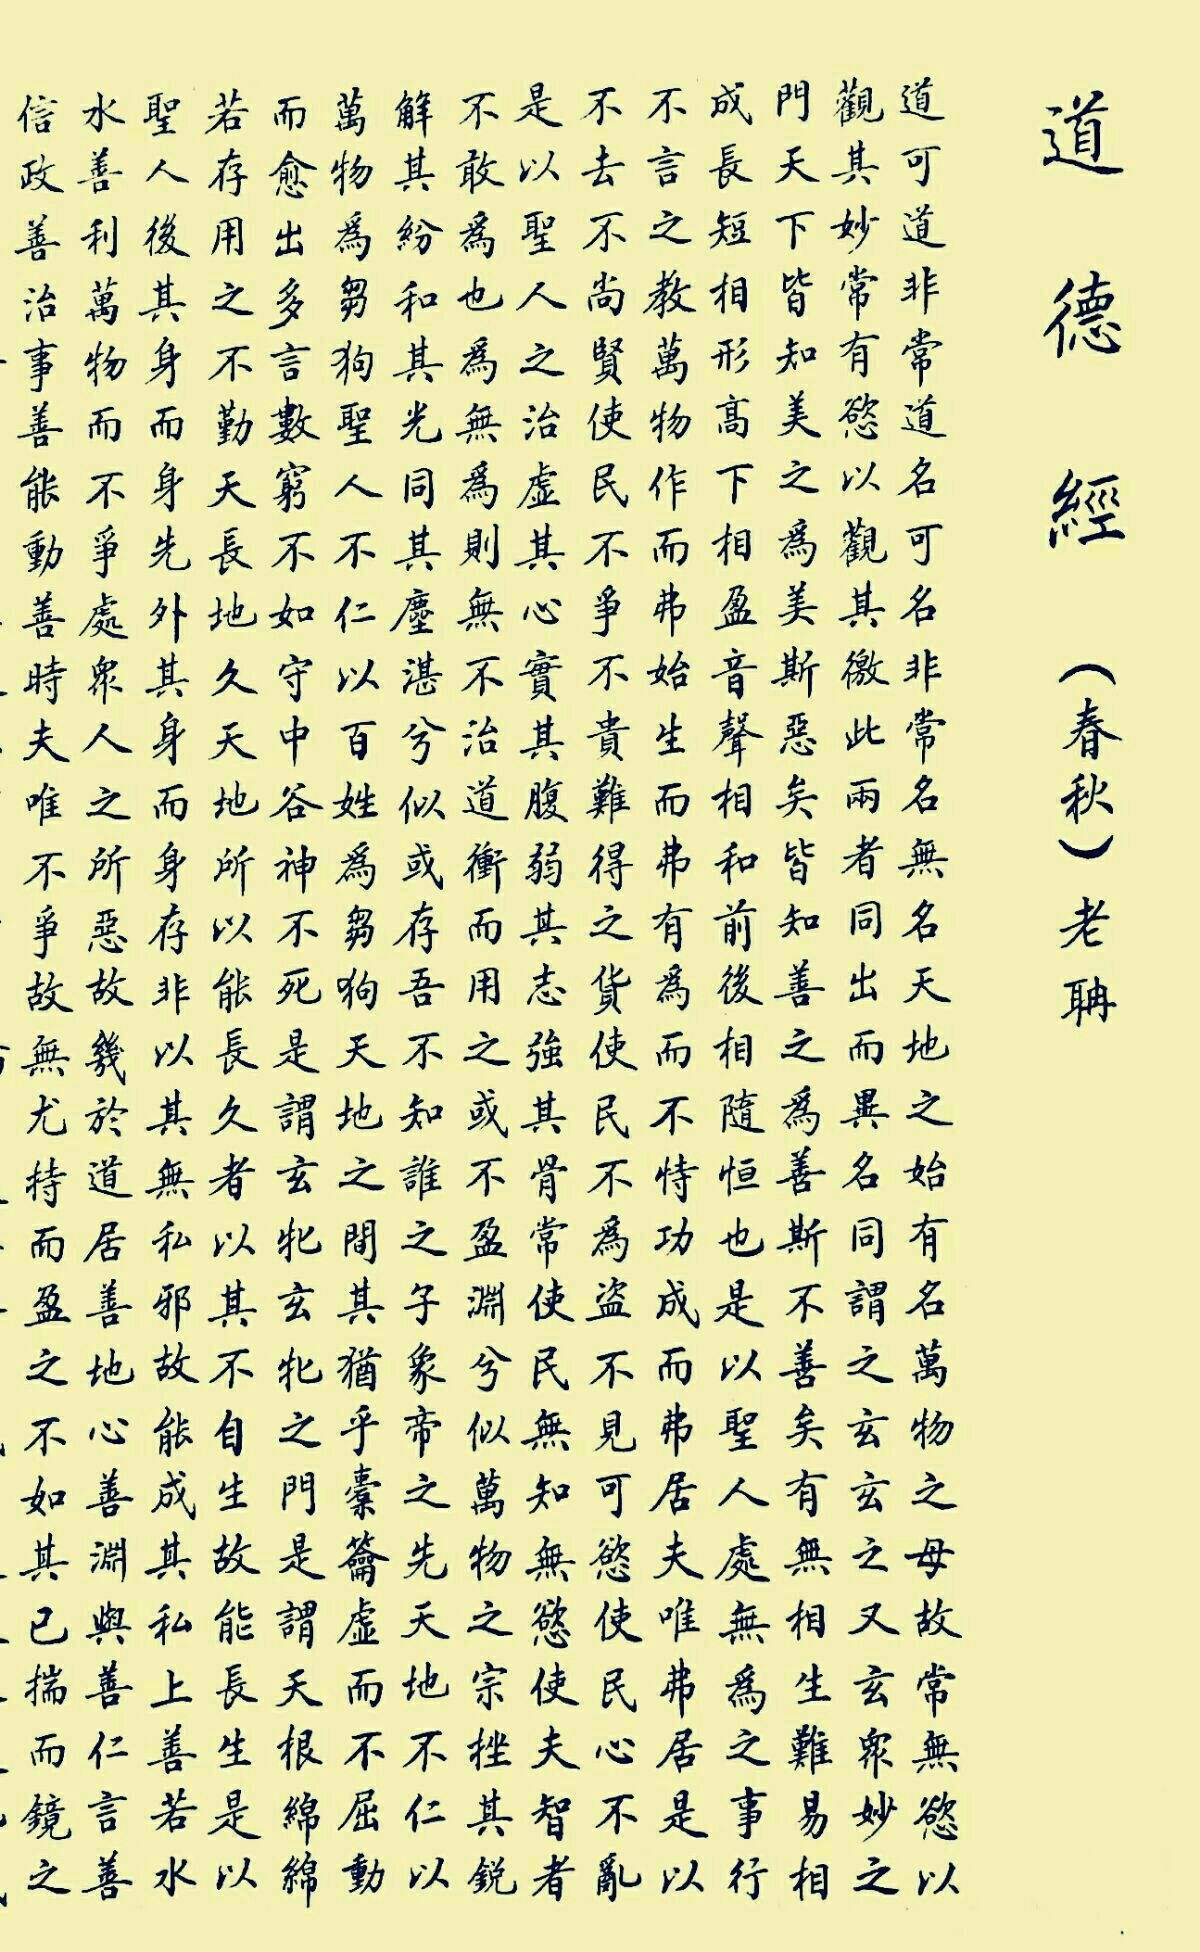 道德經（春秋）老聃
道可道非常道名可名非常名無名天地之始有名萬物之母故常無慾以
觀其妙常有慾以觀其徼此兩者同出而異名同謂之玄玄之又玄衆妙之
門天下皆知美之為美斯惡矣皆知善之為善斯不善矣有無相生難易相
成長短相形高下相盈音聲相和前後相隨恒也是以聖人處無為之事行
不言之教萬物作而弗始生而弗有為而不恃功成而弗居夫唯弗居是以
不去不尚賢使民不爭不貴難得之貨使民不為盜不見可慾使民心不亂
是以聖人之治虛其心實其腹弱其志強其骨常使民無知無慾使夫智者
不敢為也為無為則無不治道衝而用之或不盈淵兮似萬物之宗挫其銳
解其紛和其光同其塵湛兮似或存吾不知誰之子象帝之先天地不仁以
萬物為芻狗聖人不仁以百姓為芻狗天地之間其猶乎橐籥虛而不屈動
而愈出多言數窮不如守中谷神不死是謂玄牝玄牝之門是謂天根綿綿
若存用之不勤天長地久天地所以能長久者以其不自生故能長生是以
聖人後其身而身先外其身而身存非以其無私邪故能成其私上善若水
水善利萬物而不爭處衆人之所惡故幾於道居善地心善淵與善仁言善
信政善治事善能動善時夫唯不爭故無尤持而盈之不如其已揣而鏡之